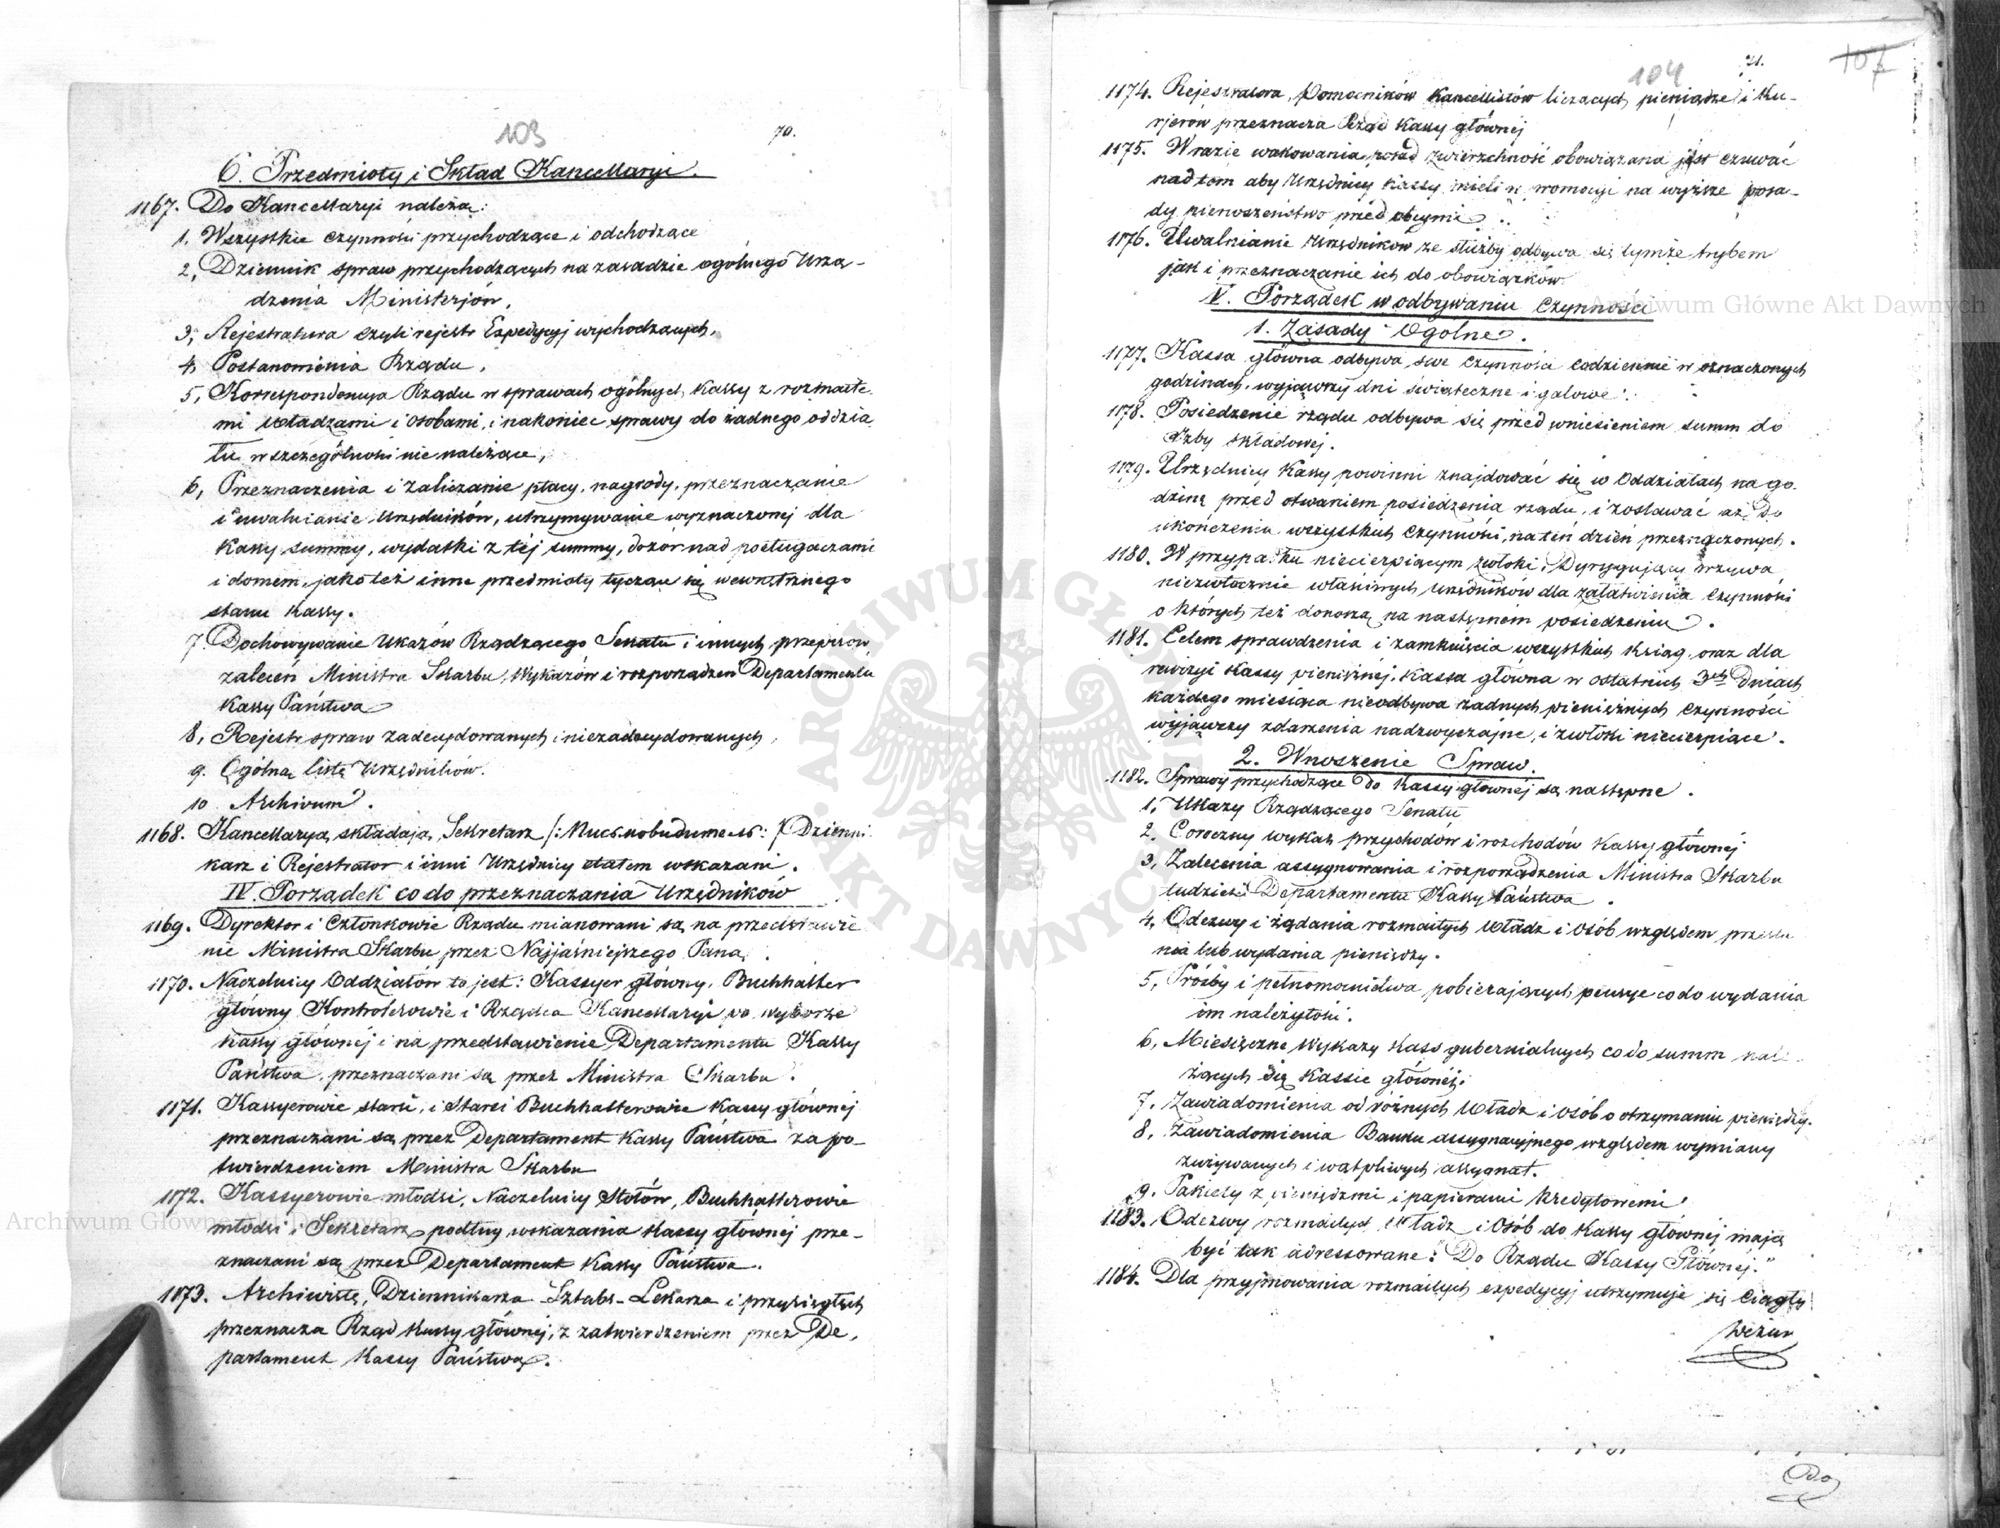 103
70.
6. Przedmioty i Skład Kancellaryi.
1167. Do Kancellaryi należą:
1, Wszystkie czynności przychodzące i odchodzące
2, Dziennik spraw przychodzących na zasadzie ogólnego Urzą-
dzenia Ministerjów.
3, Rejestratura czyli rejestr Expedycyj wychodzących,
4, Postanowienia Rządu,
5, Korrespondencya Rządu w sprawach ogólnych Kassy z rozmaite-
mi władzami i osobami, i nakoniec sprawy do żadnego oddzia
łu w szczególności nie należące,
6, Przeznaczenia i zaliczanie płacy, nagrody, przeznaczanie
i uwalnianie Urzędników, utrzymywanie wyznaczonej dla
Kassy summy, wydatki z téj summy, dozór nad posługaczami
i domem, jako też inne przedmioty tyczące się wewnętrznego
stanu Kassy.
7. Dochowywanie Ukazów Rządzącego Senatu i innych przepisów,
zaleceń Ministra Skarbu, Wykazów i rozporządzeń Departamentu
Kassy Państwa
8, Rejestr spraw zadecydowanych i niezadecydowanych,
9. Ogólną listę Urzędników.
10. Archivum.
1168. Kancellaryą składają, Sekretarz /: Письмоводитель: / Dzienni-
karz i Rejestrator i inni Urzędnicy etatem wskazani.
IV. Porządek co do przeznaczania Urzędników
1169. Dyrektor i Członkowie Rządu mianowani są na przedstawie
nie Ministra Skarbu przez Najjaśniejszego Pana.
1170. Naczelnicy Oddziałów to jest: Kassyer główny, Buchhalter
główny Kontrolerowie i Rządca Kancellaryi po wyborze
Kassy głównéj i na przedstawienie Departamentu Kassy
Państwa, przeznaczani są przez Ministra Skarbu.
1171. Kassyerowie starsi, i Starsi Buchhalterowie Kassy głównéj
przeznaczani są przez Departament Kassy Państwa za po-
twierdzeniem Ministra Skarbu
1172. Kassyerowie młodsi, Naczelnicy Stołów, Buchhalterowie
młodsi i Sekretarz podług wskazania Kassy głównej prze-
znaczani są przez Departament Kassy Państwa.
1173. Archiwistę, Dziennikarza Sztabs-Lekarza i przysięgłych
przeznacza Rząd Kassy głównéj, z zatwierdzeniem przez De,
partament Kassy Państwa.
104
71.
107
1174. Rejestratora, Pomocników Kancellistów liczących pieniądze i Ku-
rjerów przeznacza Rząd Kassy głównéj
1175. W razie wakowania posad zwierzchność obowiązana jest czuwać
nad tem aby Urzędnicy Kassy mieli w promocyi na wyższe posa-
dy pierwszeństwo przed obcymi.
1176. Uwalnianie Urzędników ze służby odbywa się tymże trybem
jak i przeznaczanie ich do obowiązków
V. Porządek w odbywaniu czynności
1. Zasady Ogólne.
1177. Kassa główna odbywa swe czynności codziennie w oznaczonych
godzinach, wyjąwszy dni świąteczne i galowe.
1178. Posiedzenie rządu odbywa się przed wniesieniem summ do
Izby składowej.
1179. Urzędnicy Kassy powinni znajdować się w Oddziałach na go-
dzinę przed otwarciem posiedzenia rządu, i zostawać aż do
ukończenia wszystkich czynności, na ten dzień przeznaczonych.
1180. W przypadku niecierpiącym zwłoki, Dyrygujący wzywa
niezwłocznie właściwych Urzędników dla załatwienia czynności
o których też donoszą na następném posiedzeniu.
1181. Celem sprawdzenia i zamknięcia wszystkich Ksiąg, oraz dla
rewizyi Kassy pieniężnéj, Kassa główna w ostatnich 3ch dniach
każdego miesiąca nieodbywa żadnych pieniężnych czynności
wyjąwszy zdarzenia nadzwyczajne, i zwłoki niecierpiące.
2. Wnoszenie Spraw.
1182. Sprawy przychodzące do Kassy głównej są następne.
1, Ukazy Rządzącego Senatu
2. Coroczny wykaz przychodów i rozchodów Kassy głównéj
3, Zalecenia assygnowania i rozporządzenia Ministra Skarbu
tudzież Departamentu Kassy Państwa
4, Odezwy i żądania rozmaitych władz i osób względem przesła
nia lub wydania pieniędzy.
5, Prośby i pełnomocnictwa pobierających pensye co do wydania
im należytości.
6, Miesięczne Wykazy Kass gubernialnych co do summ nale-
żących się Kassie głównéj.
7. Zawiadomienia od różnych władz i osób o otrzymaniu pieniędzy.
8, Zawiadomienia Banku assygnacyjnego względem wymiany
zużywanych i wątpliwych assygnat.
9. Pakiety z pieniędzmi i papierami kredytowemi
1183. Odezwy rozmaitych władz i Osób do Kassy głównéj mają
być tak adressowane: "Do Rządu Kassy Głównéj."
1184. Dla przyjmowania rozmaitych expedycyj utrzymuje się ciągły
Deżur
Do
Archiwum Główne Akt Dawnych
Archiwum Główne Akt Dawnych
ARCHIWUM GŁÓWNE AKT DAWNYCH